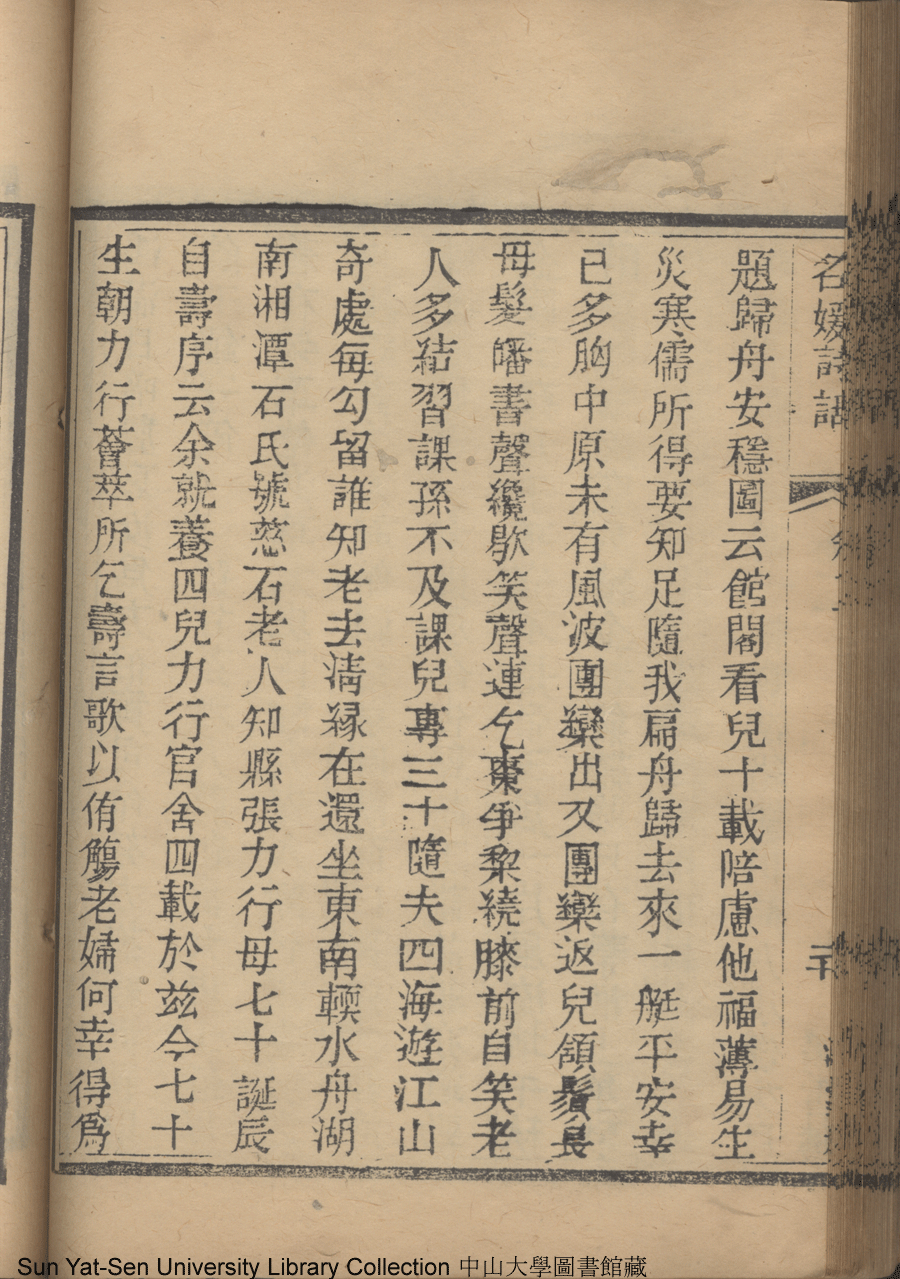 名媛詩話
題歸舟安穩圖云館閣看兒十載陪慮他福薄易生
災寒儒所得要知足隨我扁舟歸去來一艇平安幸
已多胸中原未有風波團欒出又團欒返兒頷鬚長
母髮皤書聲纔歇笑聲連乞棗爭棃繞膝前自笑老
人多結習課孫不及課兒專三十隨夫四海遊江山
奇處每勾留誰知老去清緣在還坐東南輭水舟湖
南湘潭石氏號慈石老人知縣張力行母七十誕辰
自壽序云余就養四兒力行官舍四載於茲今七十
生朝力行薈萃所乞壽言歌以侑觴老婦何幸得爲
Sun Yat-Sen University Library Collection 中山大學圖書館藏